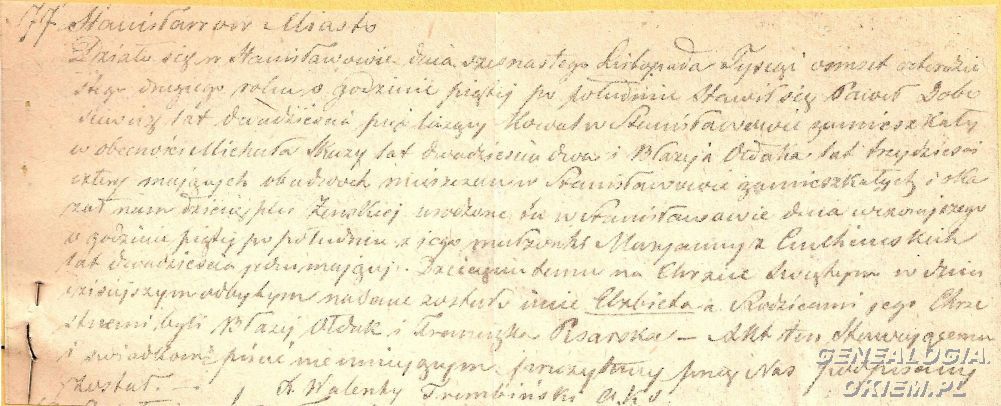 177 Stanisławow Miasto
Działo się w Stanisławowie dnia szesnastego Listopada Tysiąc osmset czterdzie
stego drugiego roku o godzinie piątej po południu Stawił się Paweł Dobo
lat dwadzieścia pięć liczący Kowal w Stanisławowie zamieszkały
w obecności Michała Skuzy lat dwadzieścia dwa i Błażeja Ołdaka lat trzydzieści
cztery mających obudwoch mieszczan w Stanisławowie zamieszkałych i oka
zał nam dziecię płci Żeńskiej urodzone tu w Stanisławowie dnia wczorajszego
o godzinie piątej po południu z jego małżonki Marjanny z
lat dwadzieścia jeden mającej. Dziecięciu temu na Chrzcie Swiętym w dniu
dzisiejszym odbytym nadane zostało imie Elżbieta a Rodzicami jego Chrze
stnemi byli Błażej Ołdak i Franciszka Pisarska – Akt ten Stawającemu
i swiadkom pisać nie umiejącym przeczytany przez Nas podpisany
został. – X Walenty Trembiński
GENEALOGIA.
OKIEM.PL